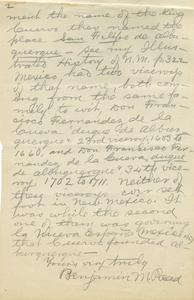 2
ment the name of the King
Cuervo then named the
place San Felipe de Albu
querque - see my Illus-
trated History of N.M. p.322
Mexico had two viceroys
of that name both com
ing from the same fa
mily to wit: Don Fran
cisco Fernandez de la
Cueva "duque de Albur
querque" 23rd viceroy 1653 to
1660, and Don Francisco Fer-
nandez de la Cueva, duque
de alburquerque 34th vice-
roy 1702 to 1711. Neither of
these viceroys ever set
foot in New Mexico. It
was while the second
one of them was governing
la Nueva España (Mexico)
that Cuervo founded Al-
burquerque -
Yours very truly
Benjamin M. Read